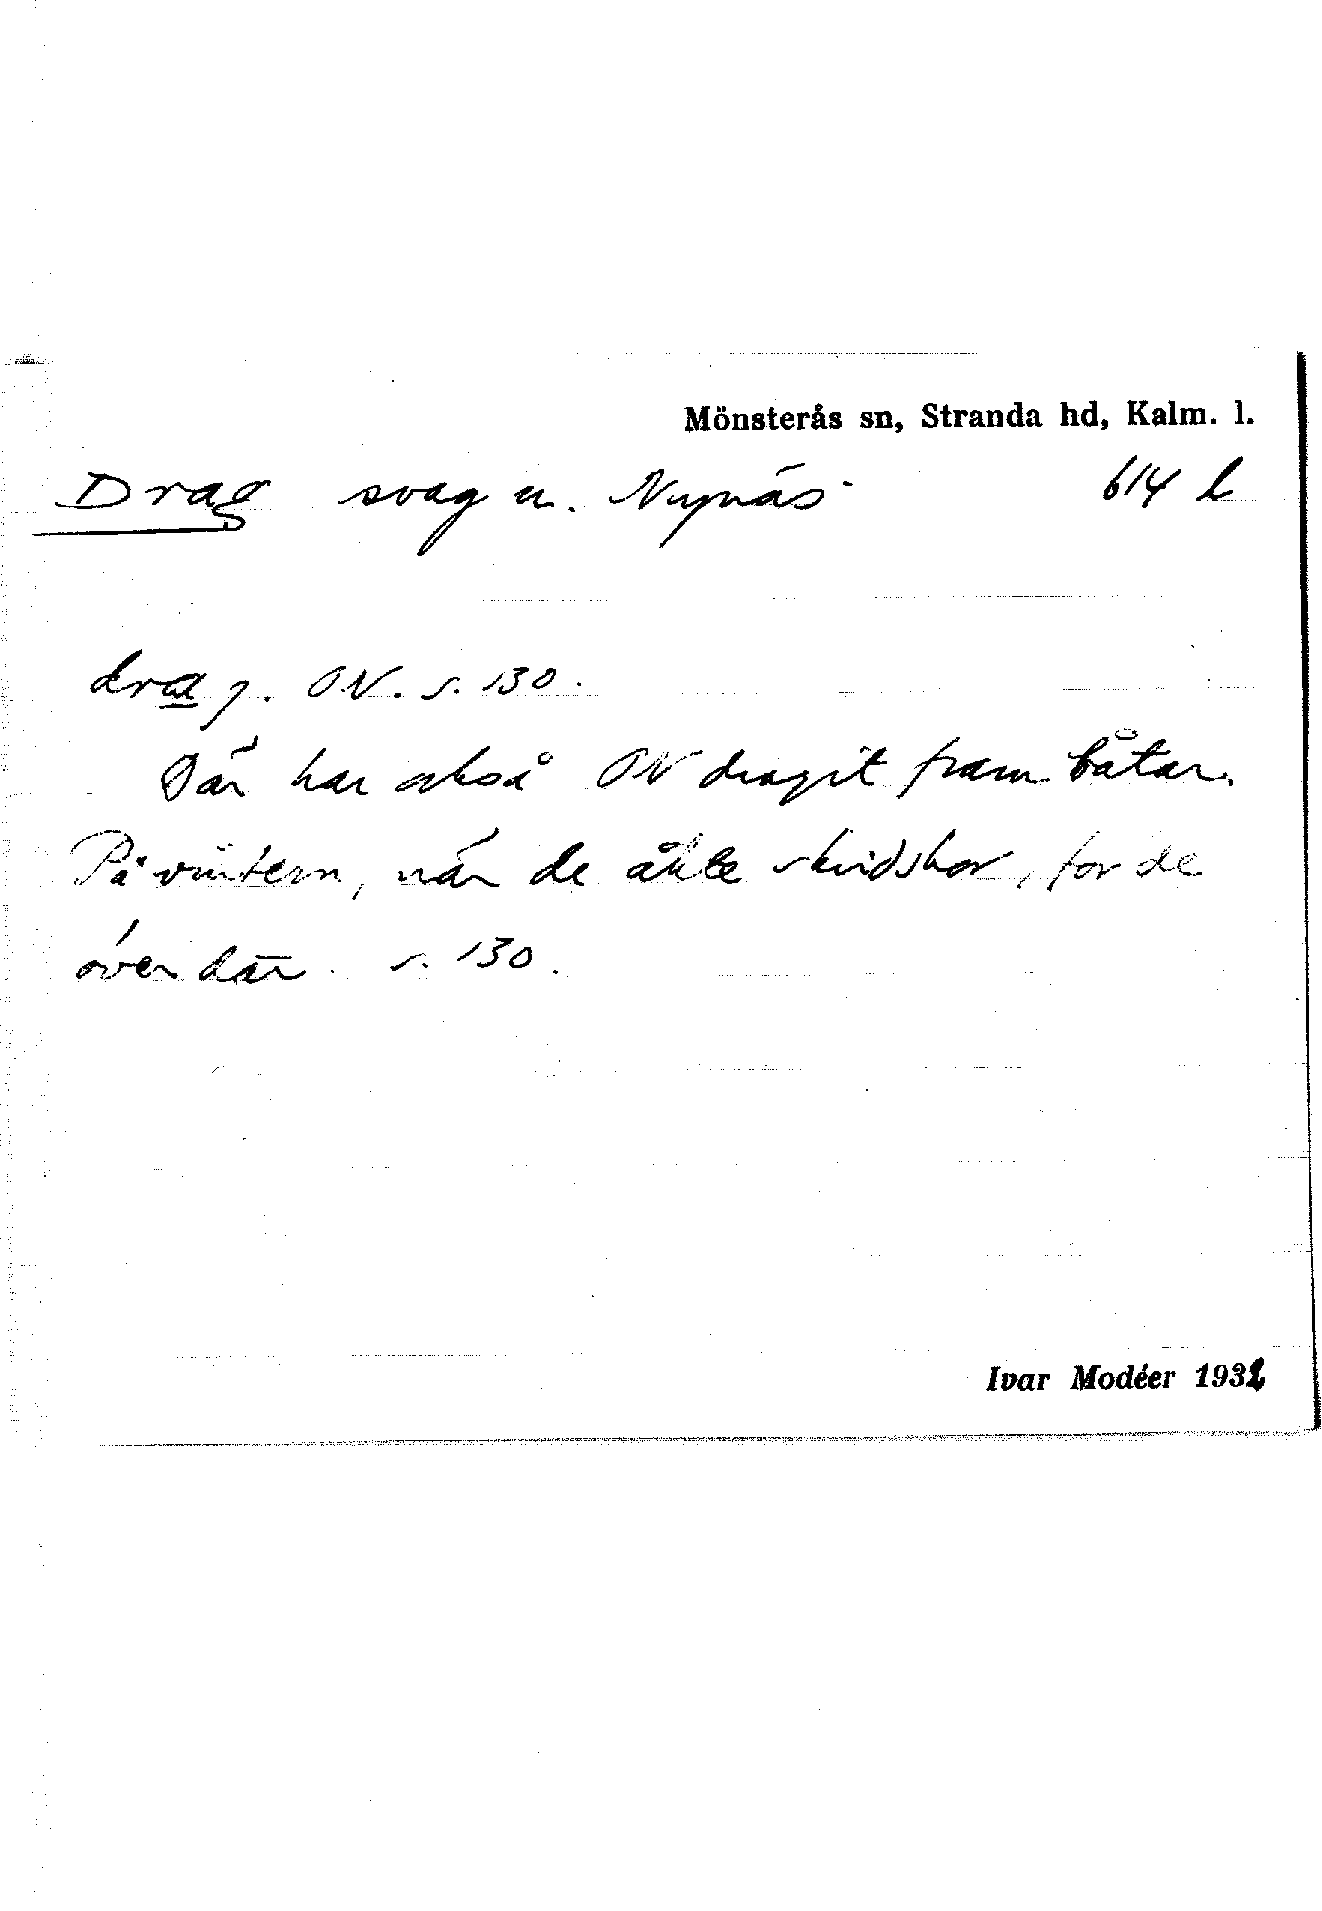 Mönsterås sn, Stranda hd, Kalm. l.
Drag svag n. Nynäs 614 b
drag. ON. s. 130.
Där har också ON dragit fram båtar.
På vintern, när de åkte skridskor, for de
över där. s. 130.
Ivar Modéer 1932